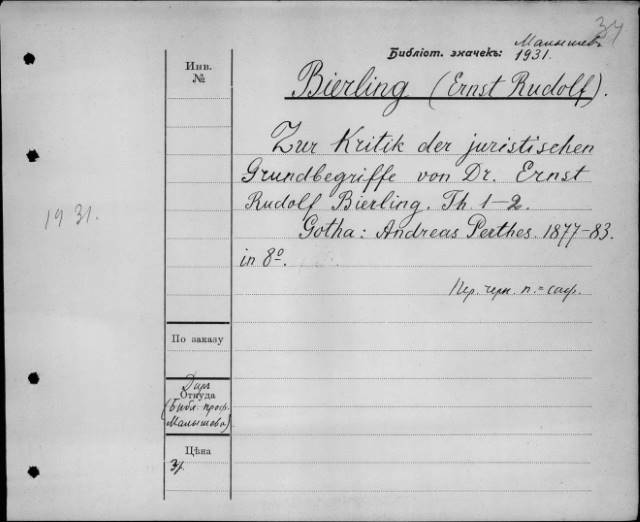 34
Библіот. значекъ: Малышев
1931.
Инв.
№
Bierling (Ernst Rudolf).
Zur Kritik der juristischen
Grundbegriffe von Dr. Ernst
Rudolf Bierling. Th. 1-2.
Gotha: Andreas Perthes. 1877-83.
in 8º.
1931.
Пер. черн. п. = саф.
По заказу
Даръ
Откуда
(Библ. проф.
Малышева)
Цѣна